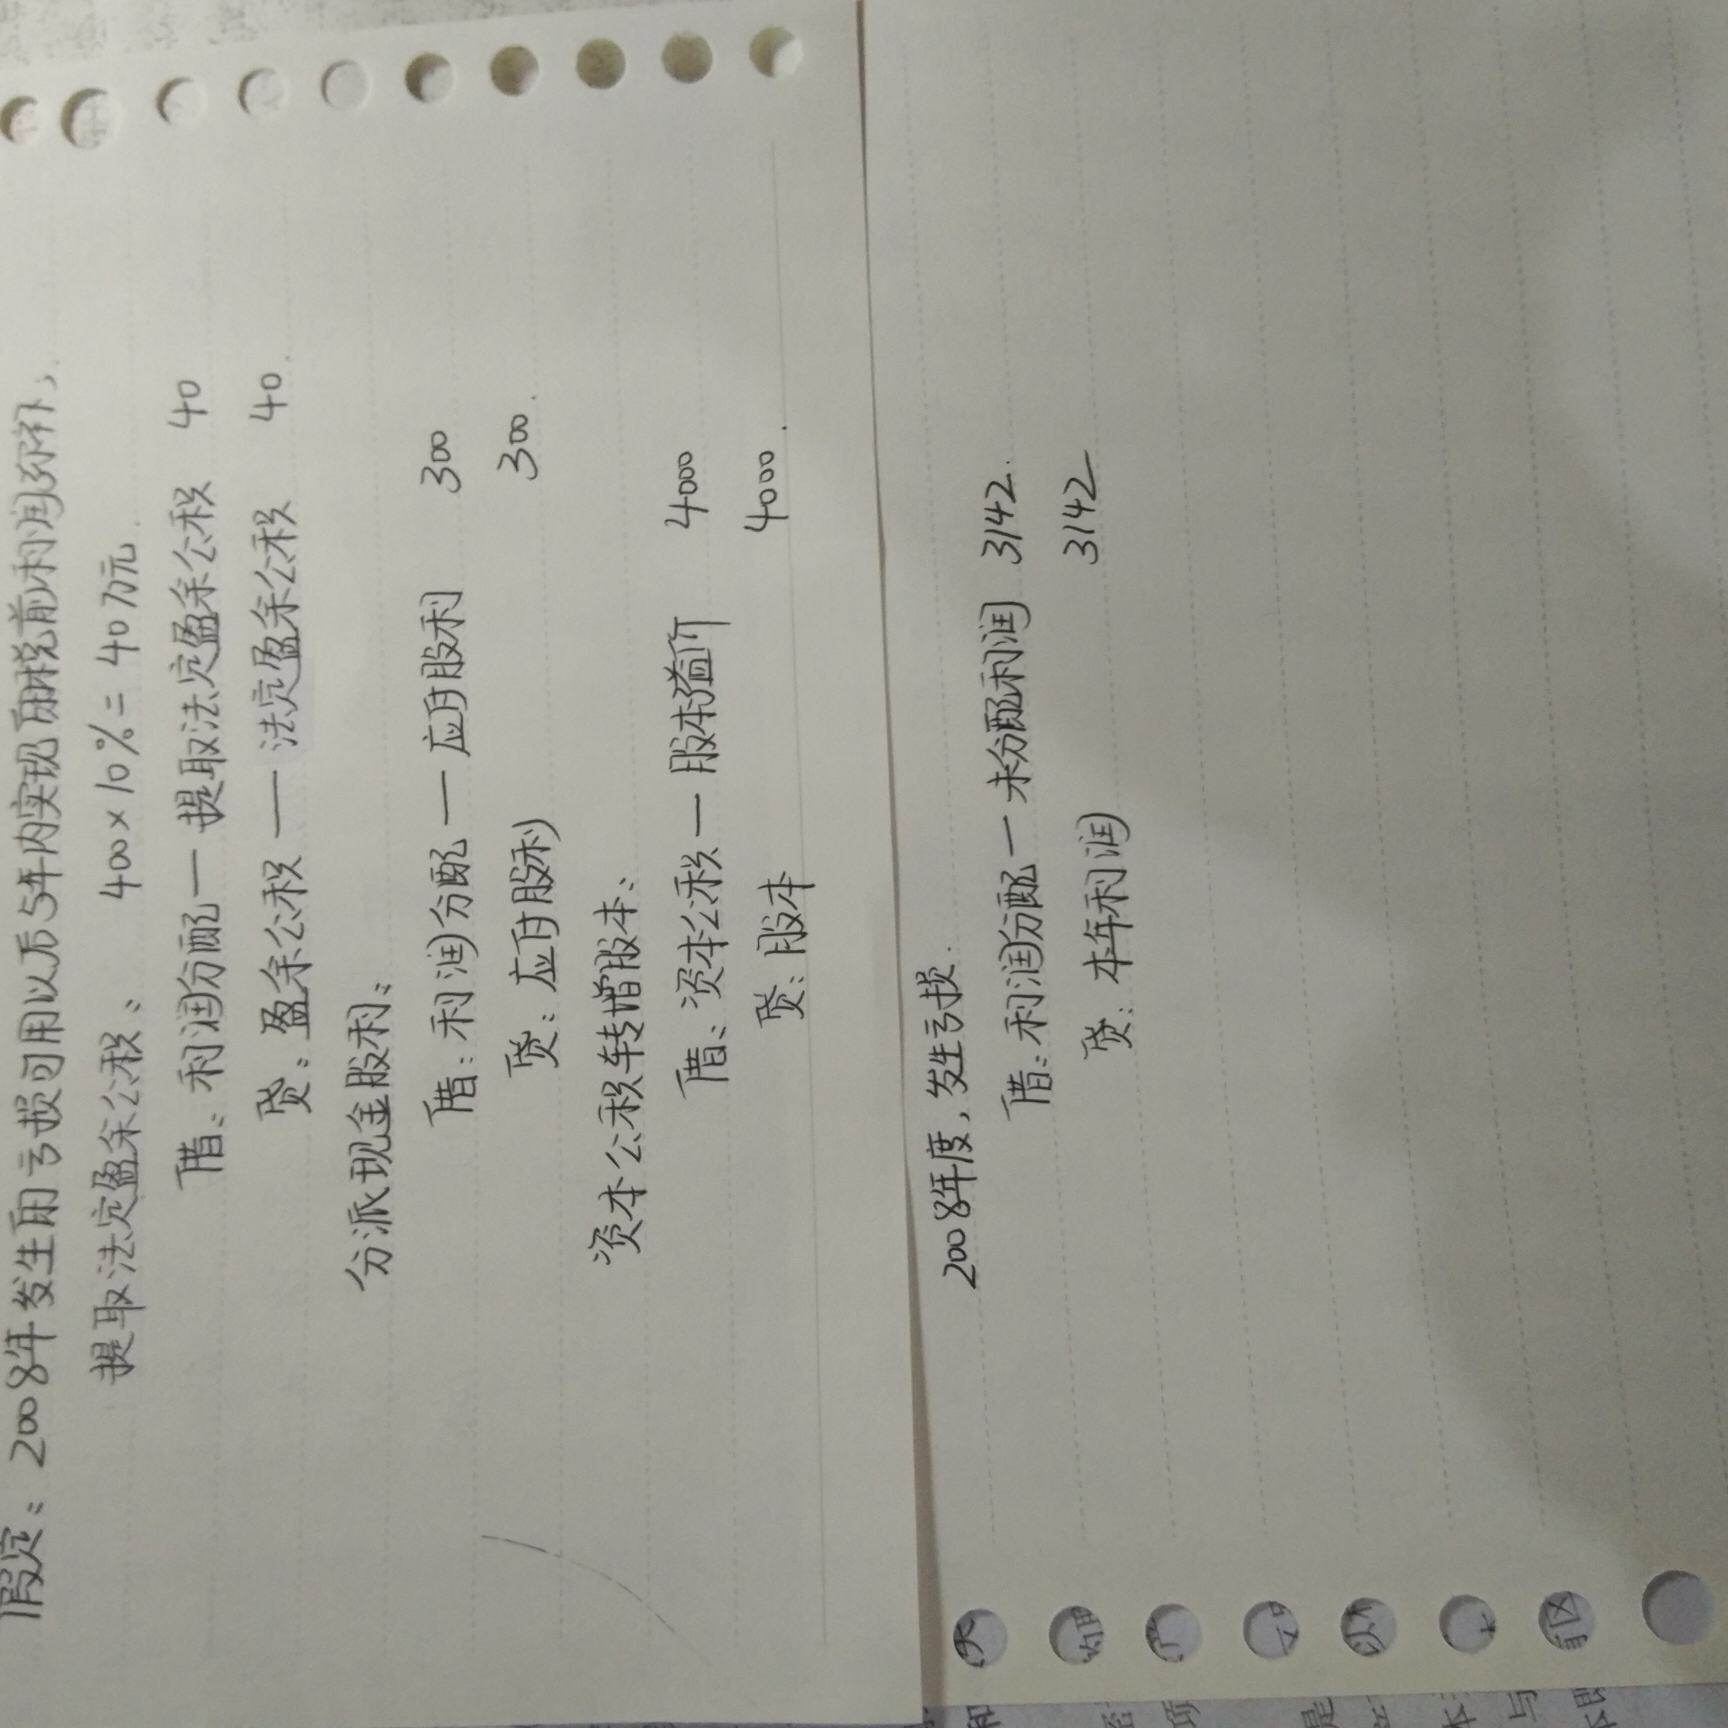 假定：2008年发生的亏损可用以后5年内实现的税前利润弥补、
提取法定盈余公积： 400×10%=40万元.
借：利润分配—提取法定盈余公积 40
贷：盈余公积—法定盈余公积 40.
分派现金股利：
借：利润分配—应付股利 300
贷：应付股利 300.
资本公积转增股本：
借：资本公积—股本溢价 4000
贷：股本 4000.
2008年度，发生亏损.
借：利润分配—未分配利润 3142.
贷：本年利润 3142